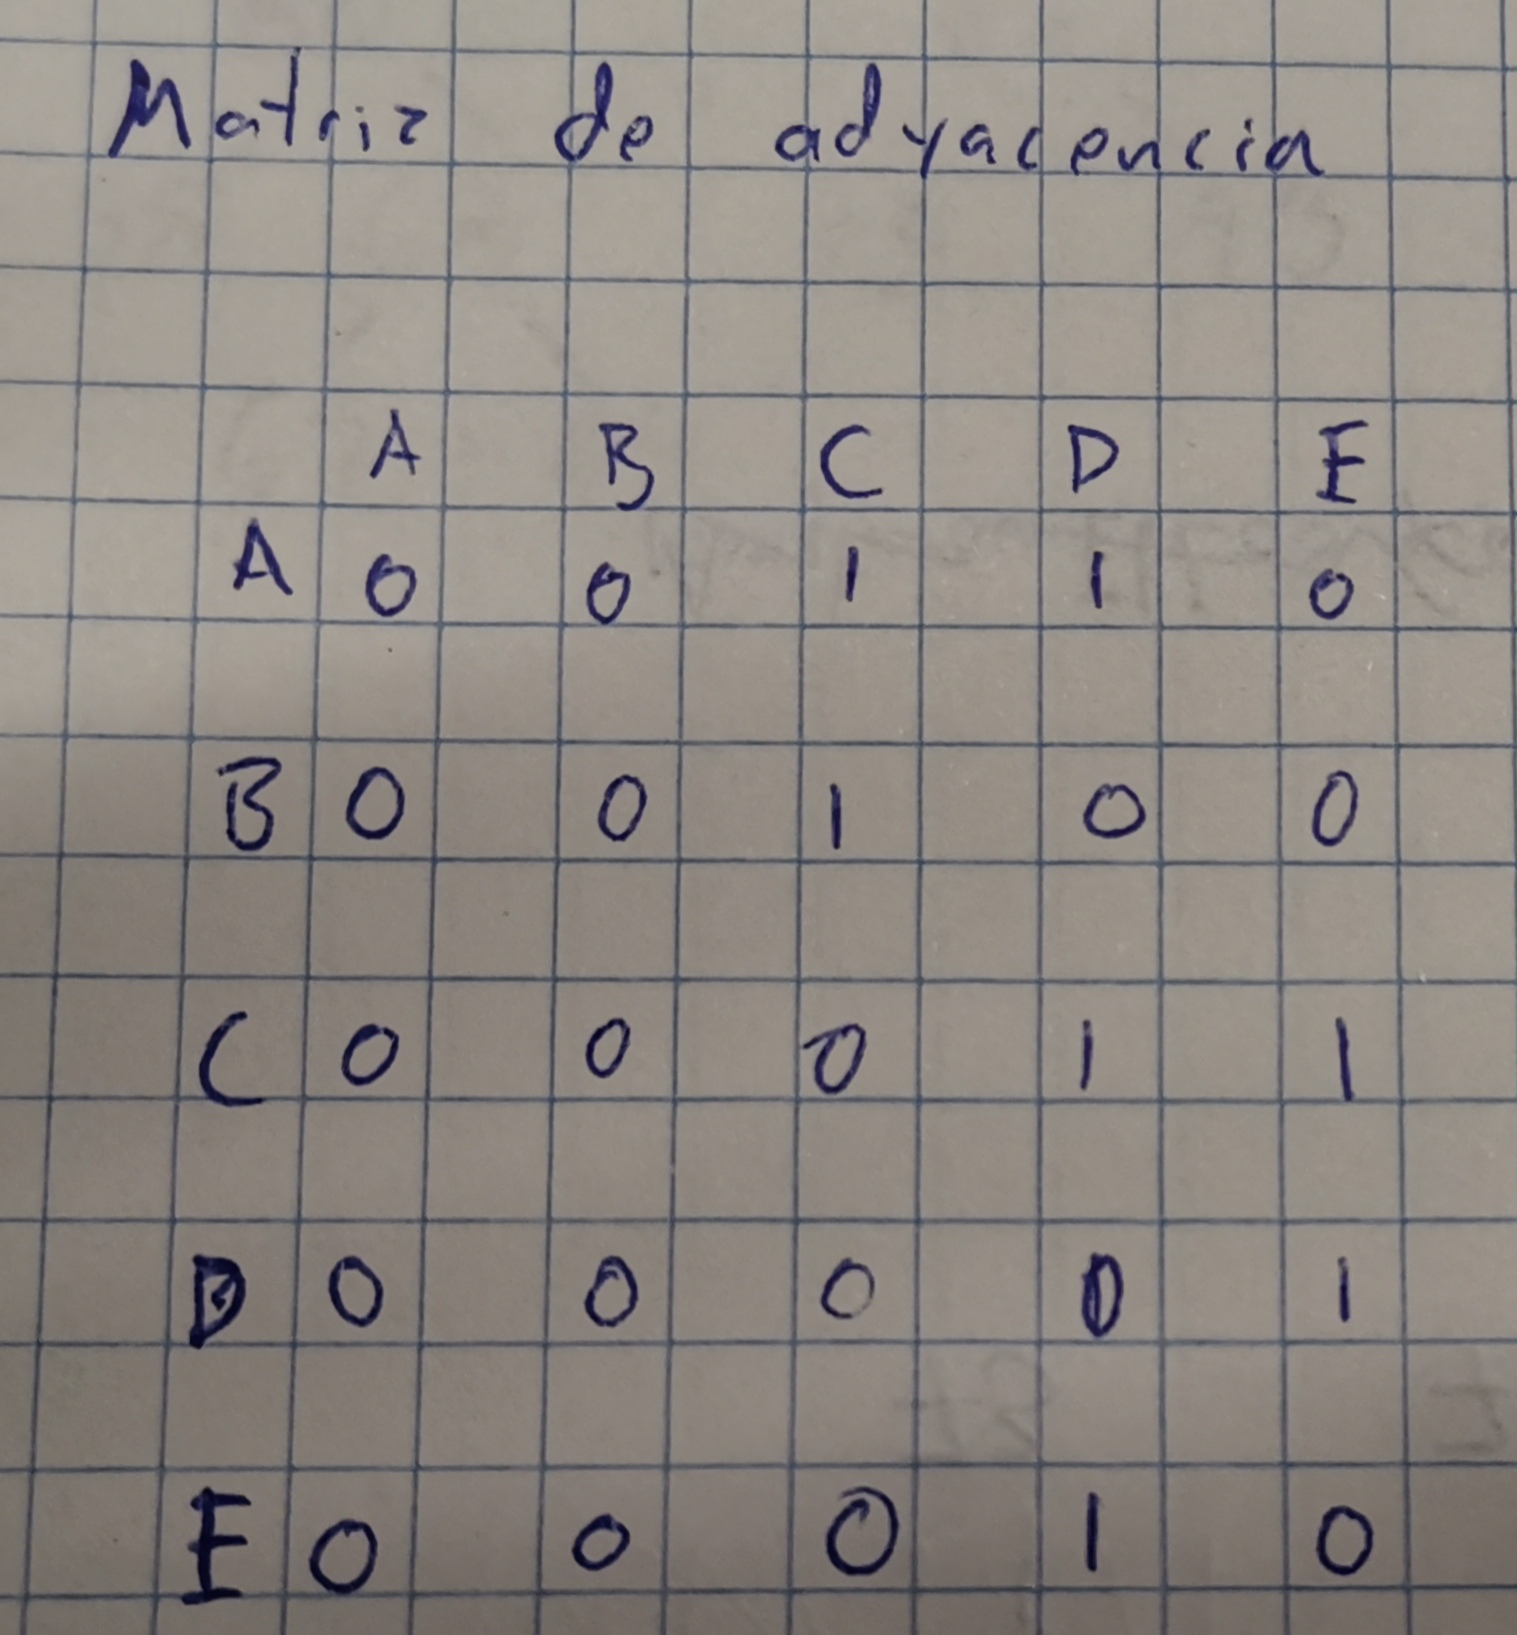 Matriz de adyacencia
A B C D E
A 0 0 1 1 0
B 0 0 1 0 0
C 0 0 0 1 1
D 0 0 0 0 1
E 0 0 0 1 0